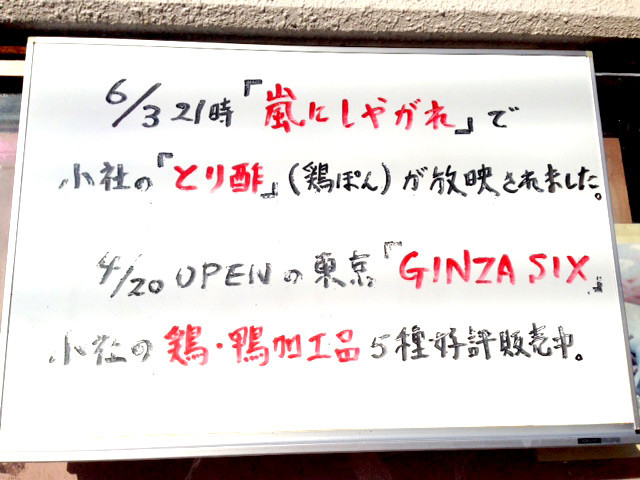 6/3 21時『嵐にしやがれ』で
小社の『とり酢』(鶏ぽん)が放映されました。
4/20 OPENの東京『GINZA SIX』
小社の鶏・鴨加工品5種好評販売中。